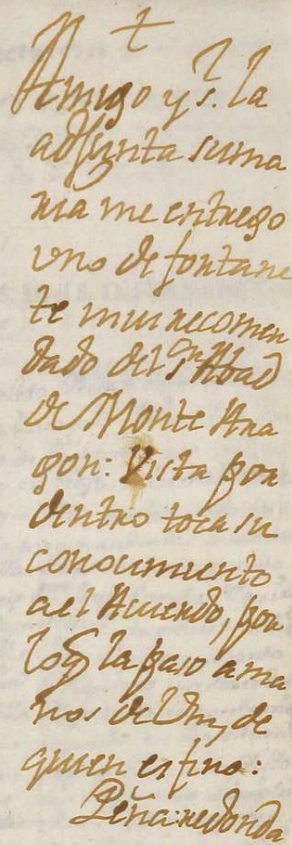 t
Amigo y s.r la
adjunta suma
ria me entrego
vno de fontane
te mui recomen
dado del s.or Abad
de Monte Ara
gon: Vista por
dentro toca su
conocimiento
a el Acuerdo, por
lo q la paso a ma
nos de Vm, de
quien es fino:
Peña:redonda